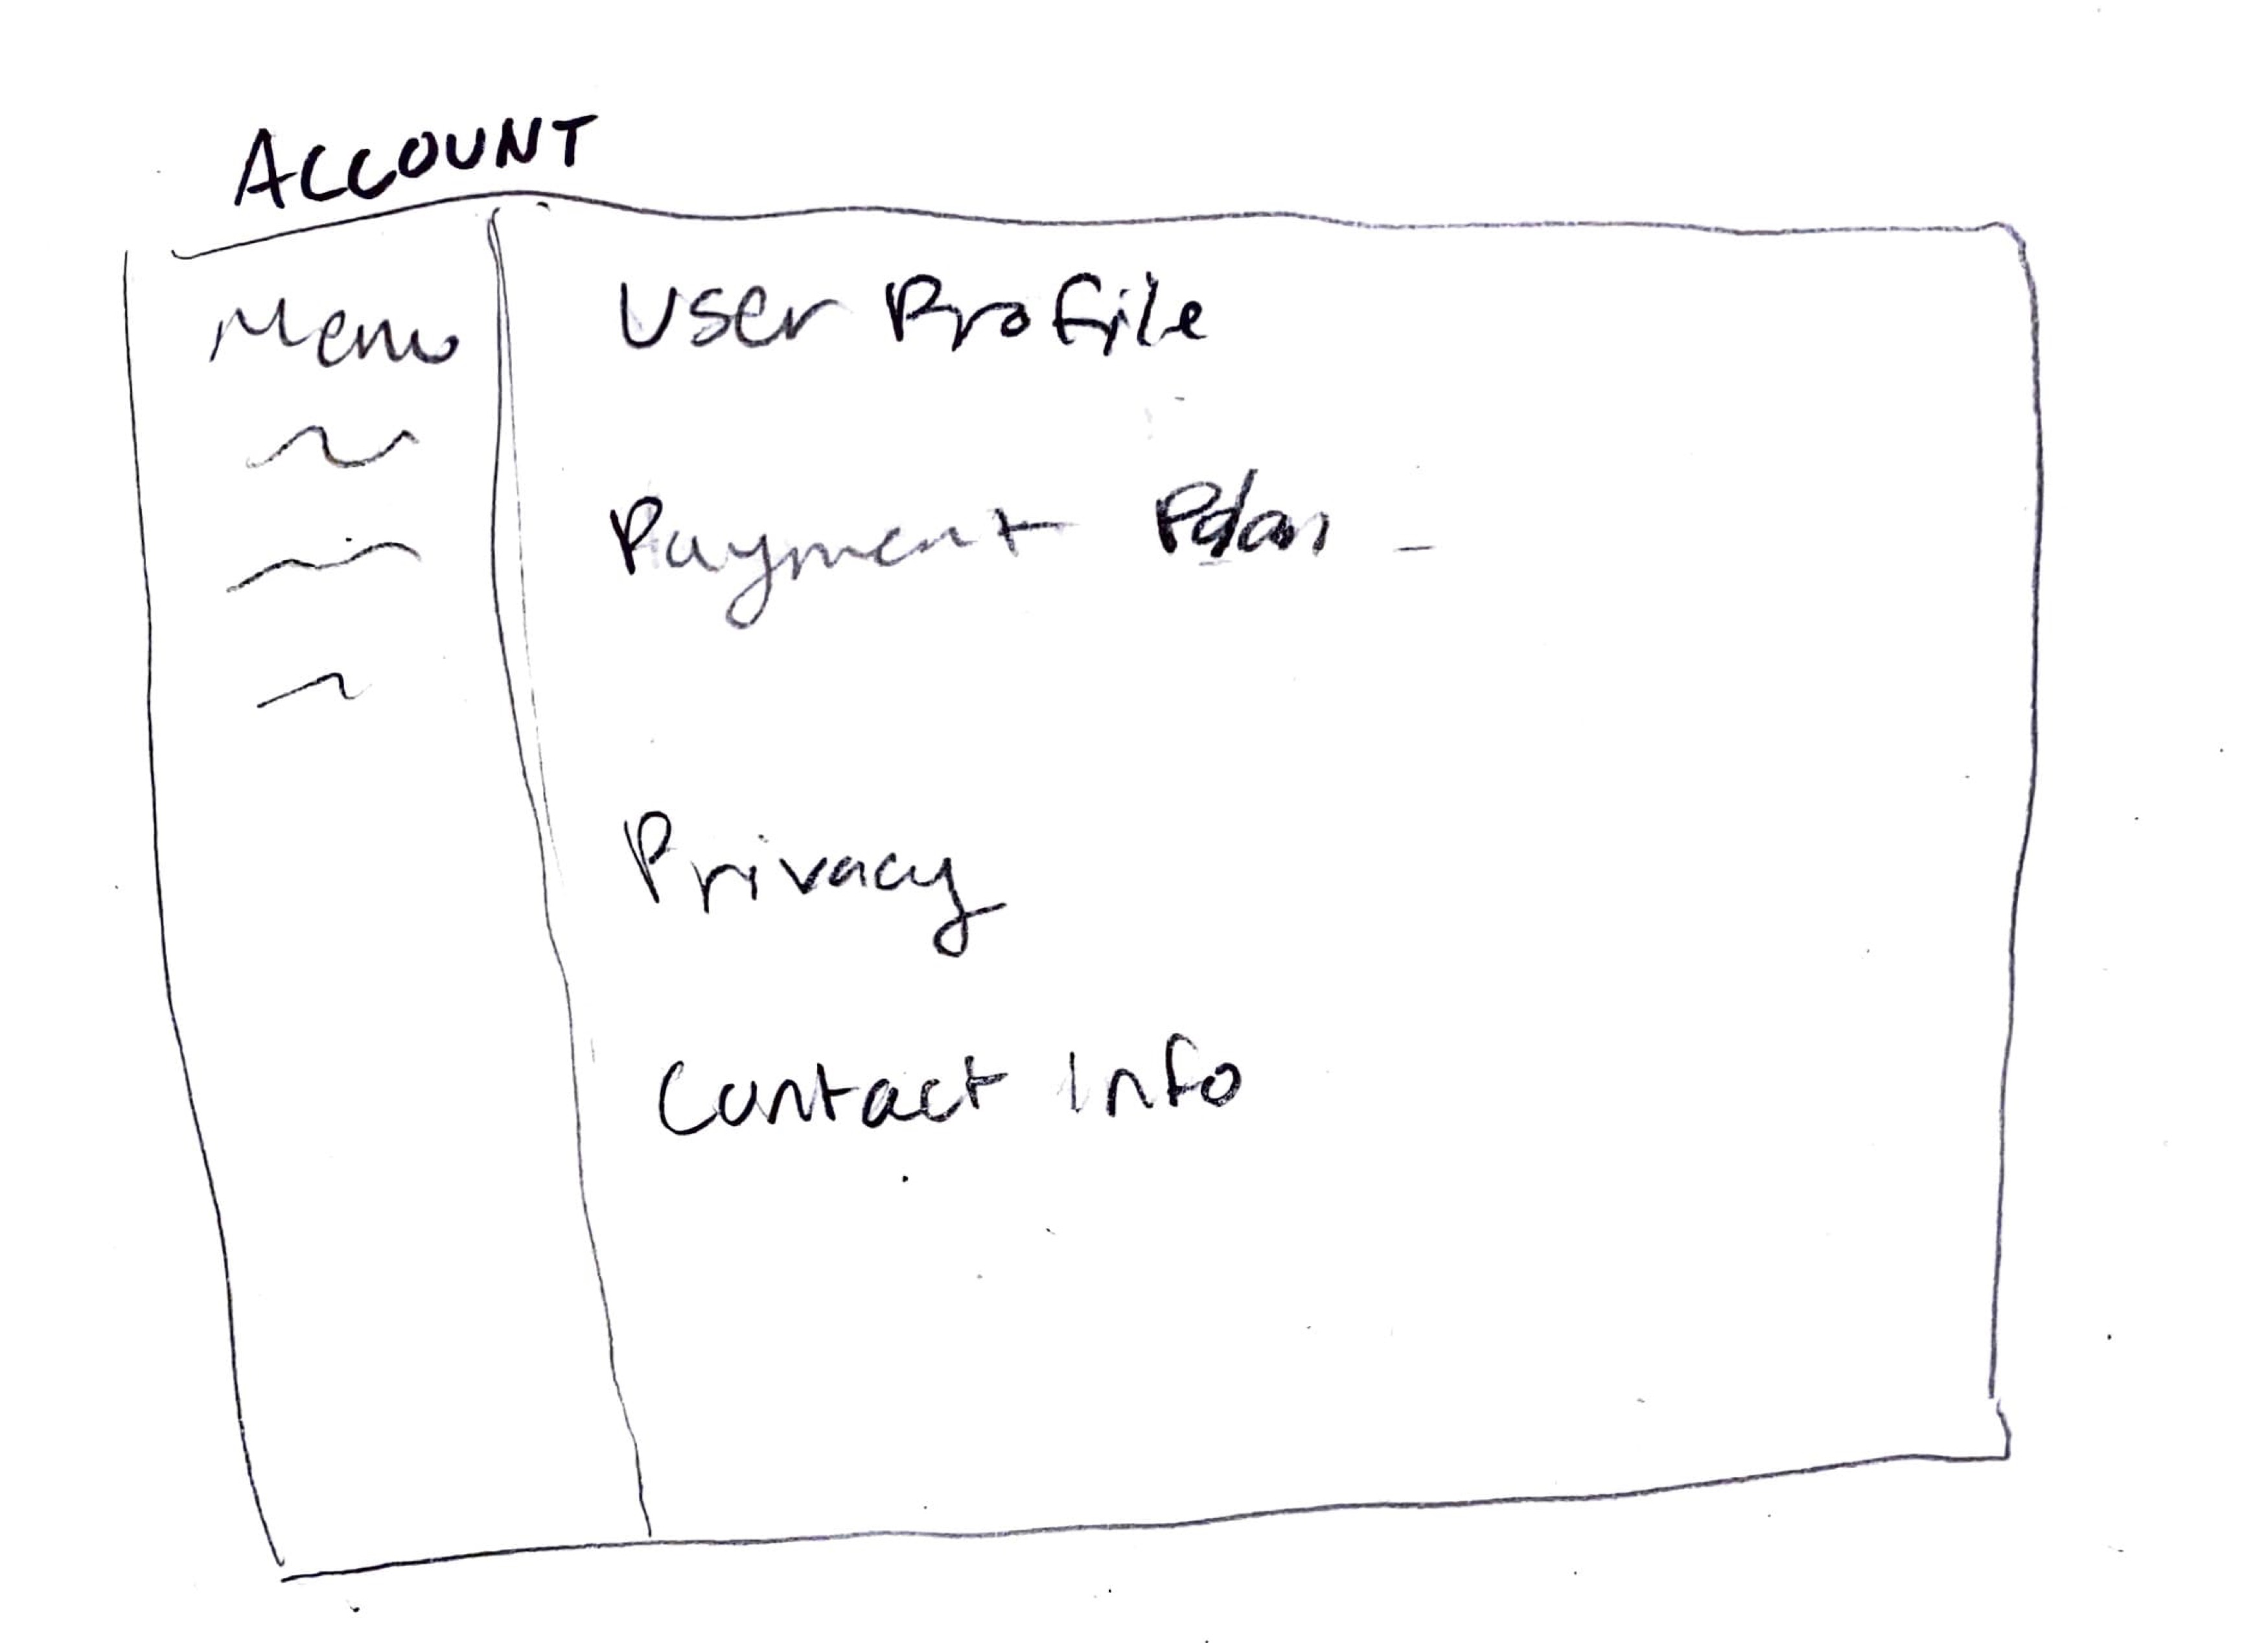 ACCOUNT
Menu
User Profile
Payment Plan
Privacy
Contact Info